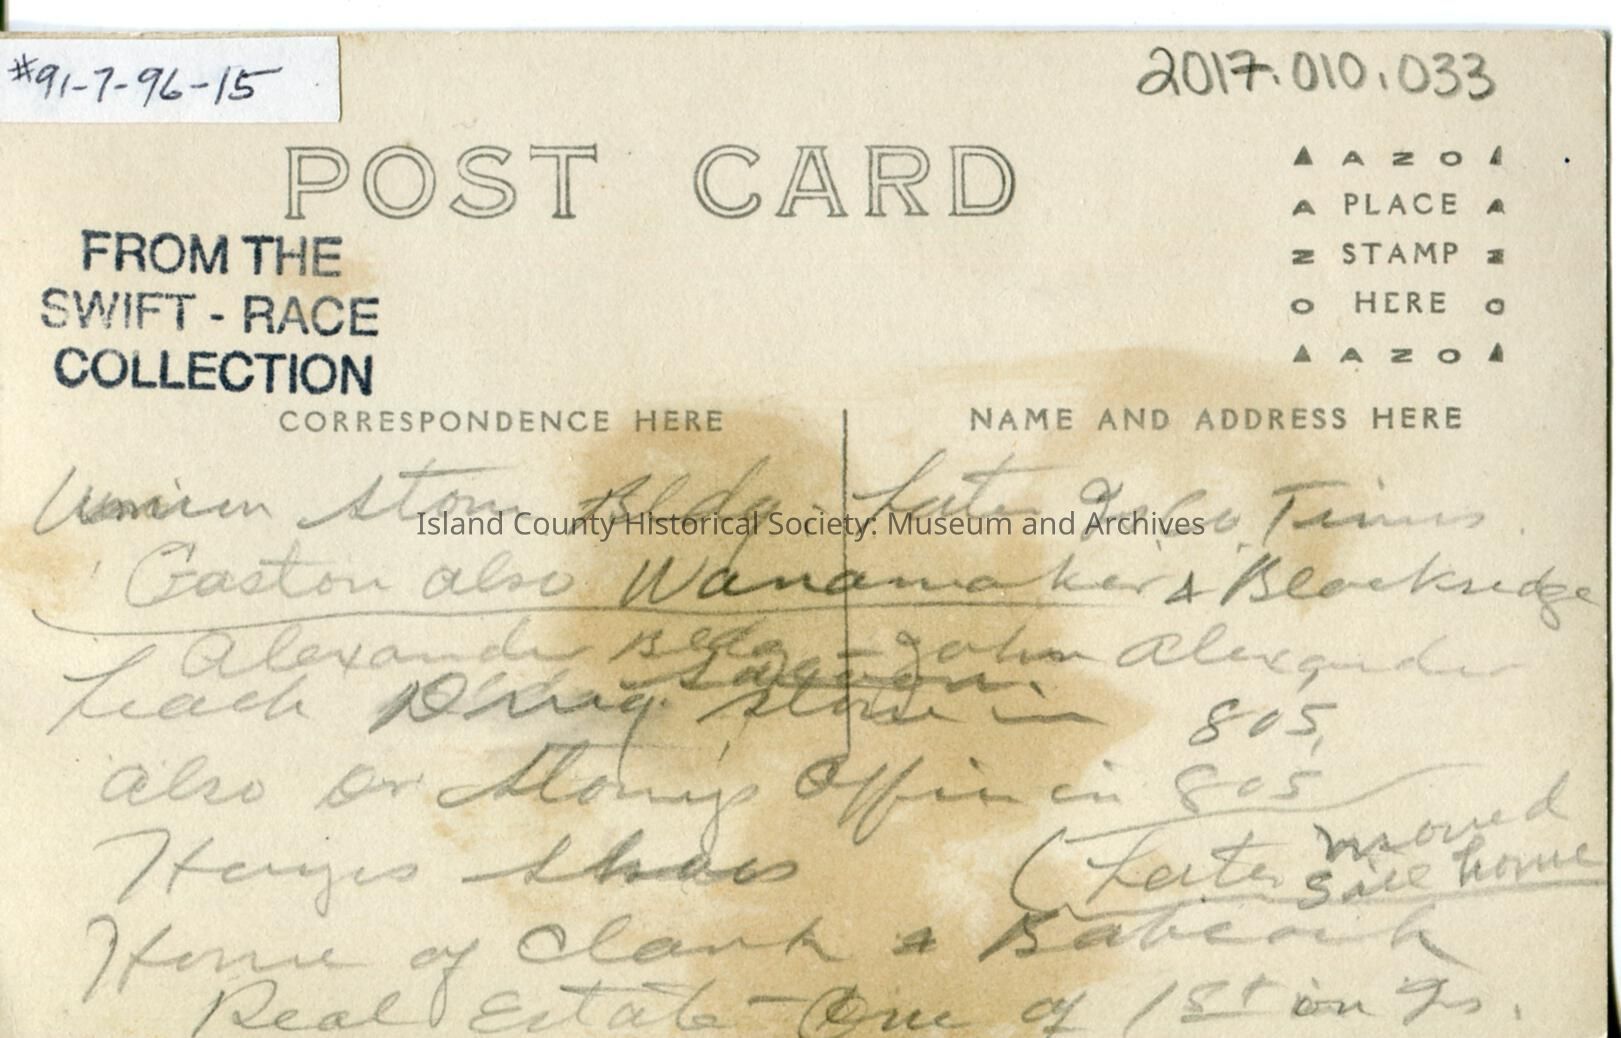 #91-7-96-15
2017.010.033
POST CARD
AZO
A PLACE A
Z STAMP Z
O HERE O
AZO
FROM THE
SWIFT - RACE
COLLECTION
CORRESPONDENCE HERE
NAME AND ADDRESS HERE
Union Store Bldg. - Later Is. Co. Times.
Island County Historical Society: Museum and Archives
Gaston also Wanamaker & Blockridge
Alexander Bldg - John Alexander
Saloon.
Leach Drug Store in 805,
also Dr Office in 805
Shoes
(Later moved
home
Home of Clark & Babcock
Real Estate - One of 1st on Is.